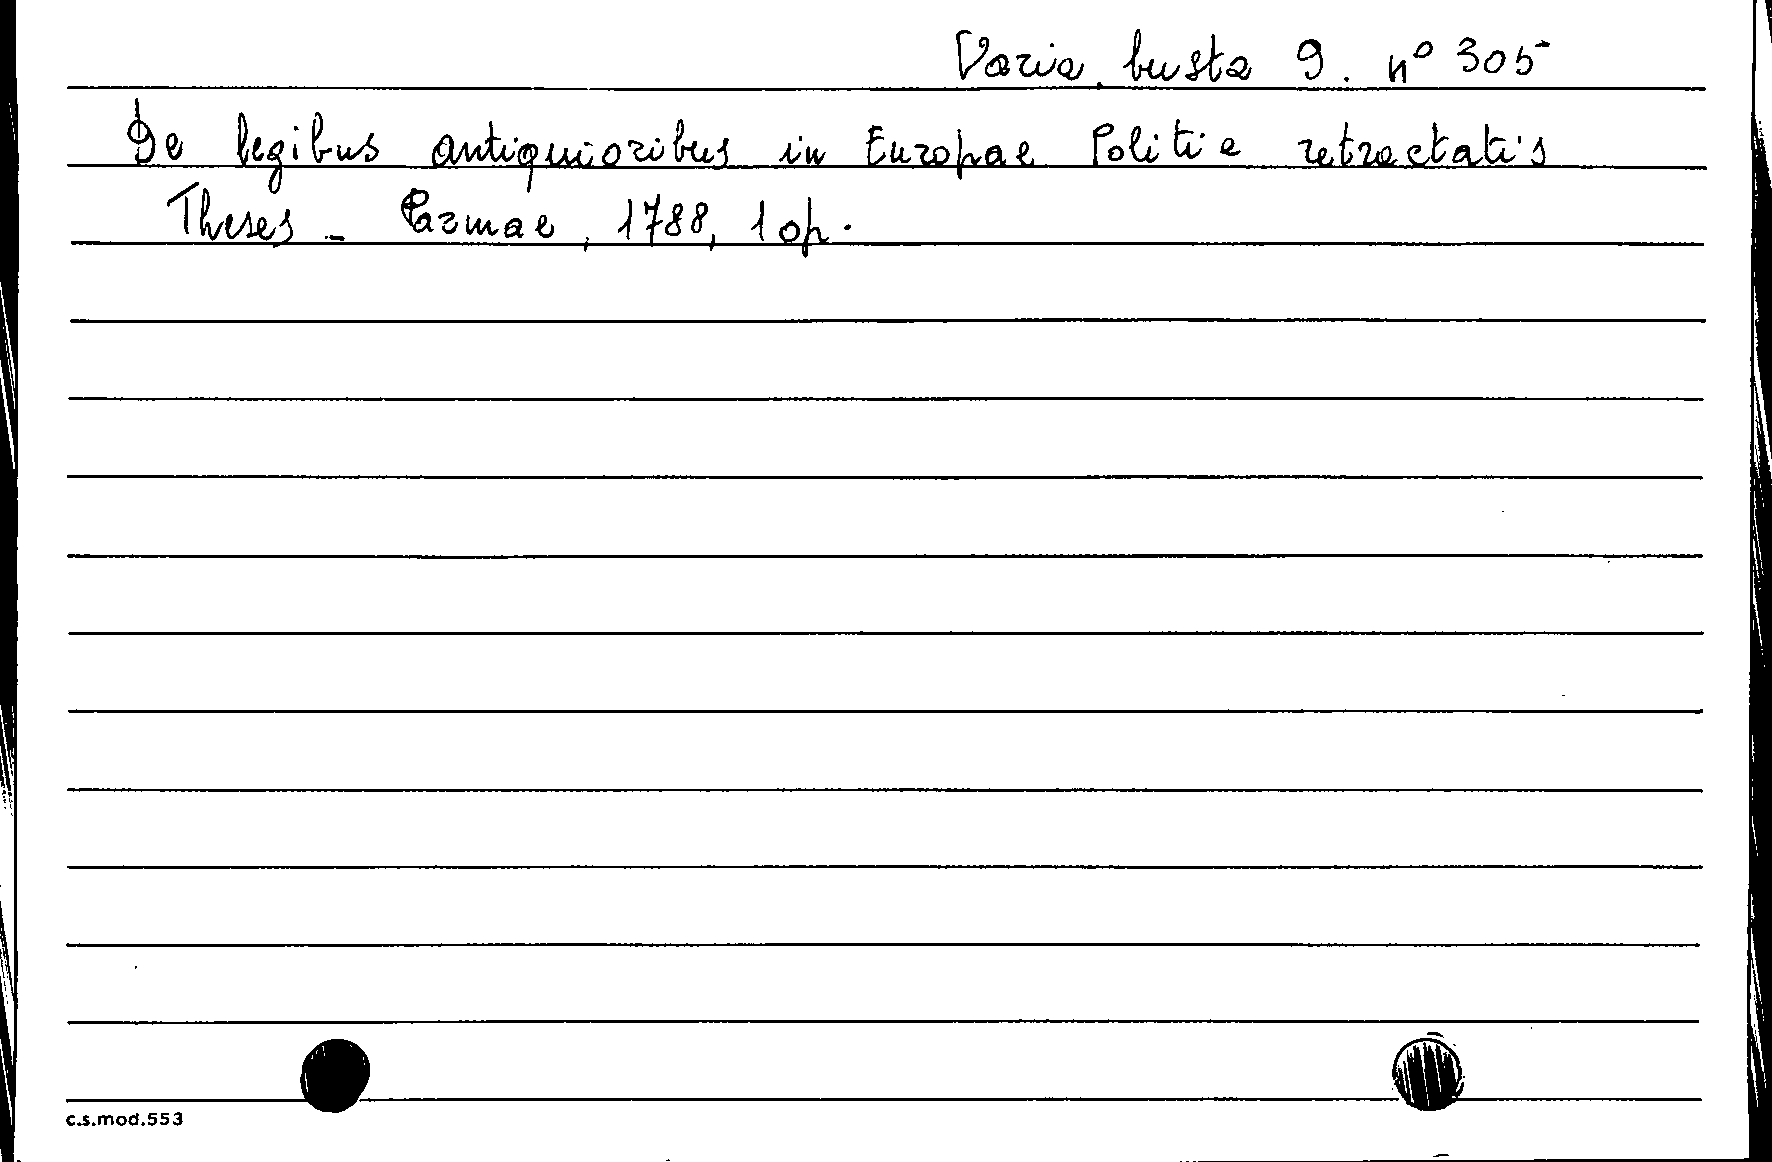 Varia, busta 9. nº 305
De legibus antiquioribus in Europae Politia retractatis
Theses - Parmae, 1788, 1 op.
c.s.mod.553